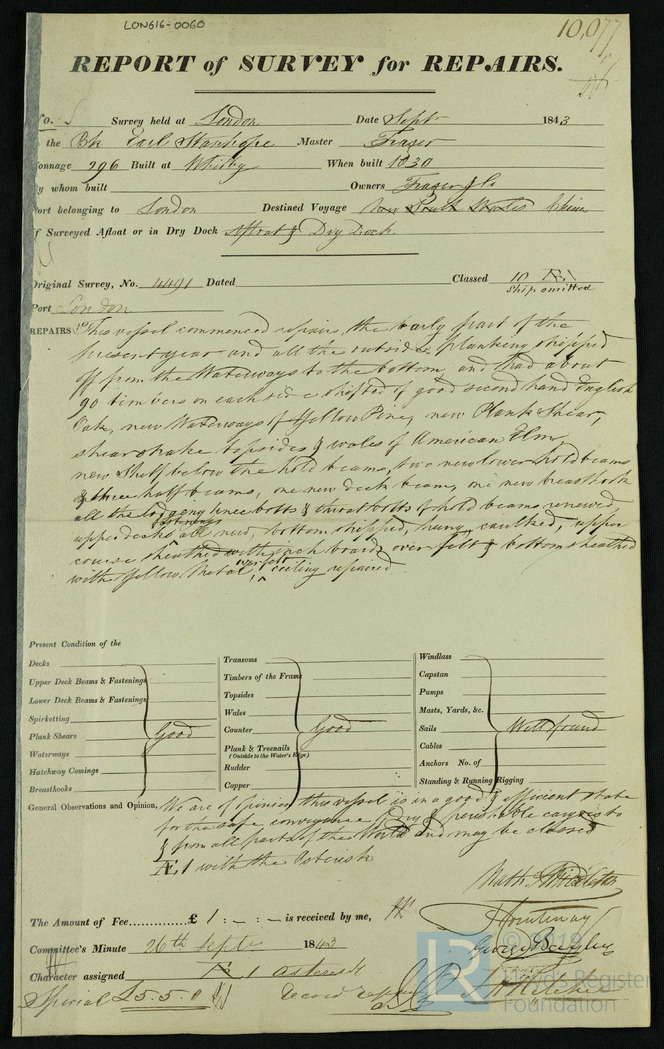 LON616-0060
10,077
REPORT of SURVEY for REPAIRS.
No. Survey held at London Date Septr 1843
the Bk Earl Stanhope Master Fraser
Tonnage 296 Built at Whitby When built 1830
By whom built Owners Fraser & Co
Port belonging to London Destined Voyage New South Wales China
If Surveyed Afloat or in Dry Dock Afloat & Dry Dock
Original Survey, No. 4491 Dated Classed 10
Ship omitted
Port London
REPAIRS This vessel commenced repairs, the early part of the
present year and all the outside planking stripped
off from the Waterways to the bottom, and had about
90 timbers on each side shifted of good second hand English
Oak, new Waterways of Yellow Pine, new Plank Shear,
shearstrake topsides & wales of American Elm,
new Shelf below the hold beams, two new lower hold beams
& three half beams, one new deck beam, one new breasthook
all the knee bolts & throat bolts of hold beams renewed,
fastenings
upper deck all new, bottom stripped, caulked, upper
course sheathed with inch board over felt & bottom sheathed
over felt
with Yellow Metal, ceiling repaired
Present Condition of the
Decks
Upper Deck Beams & Fastenings
Lower Deck Beams & Fastenings
Spirketting
Plank Shears Good
Waterways
Hatchway Comings
Breasthooks
Transoms
Timbers of the Frame
Topsides
Wales
Counter Good
Plank & Treenails
(Outside to the Water's Edge)
Rudder
Copper
Windlass
Capstan
Pumps
Masts, Yards, &c.
Sails Well found
Cables
Anchors No. of
Standing & Running Rigging
General Observations and Opinion, We are of opinion this vessel is in a good & efficient state
for the safe conveyance of dry & perishable cargoes to
& from all parts of the World and may be classed
Æ 1 with the Asterisk
The Amount of Fee............£ 1 : - : - is received by me,
Courtenay
Committee's Minute 26th Septr 1843
George Bayley
Character assigned Æ 1 asterisk
Special £5.5.0
© 2019
LR
Lloyd's Register
Foundation